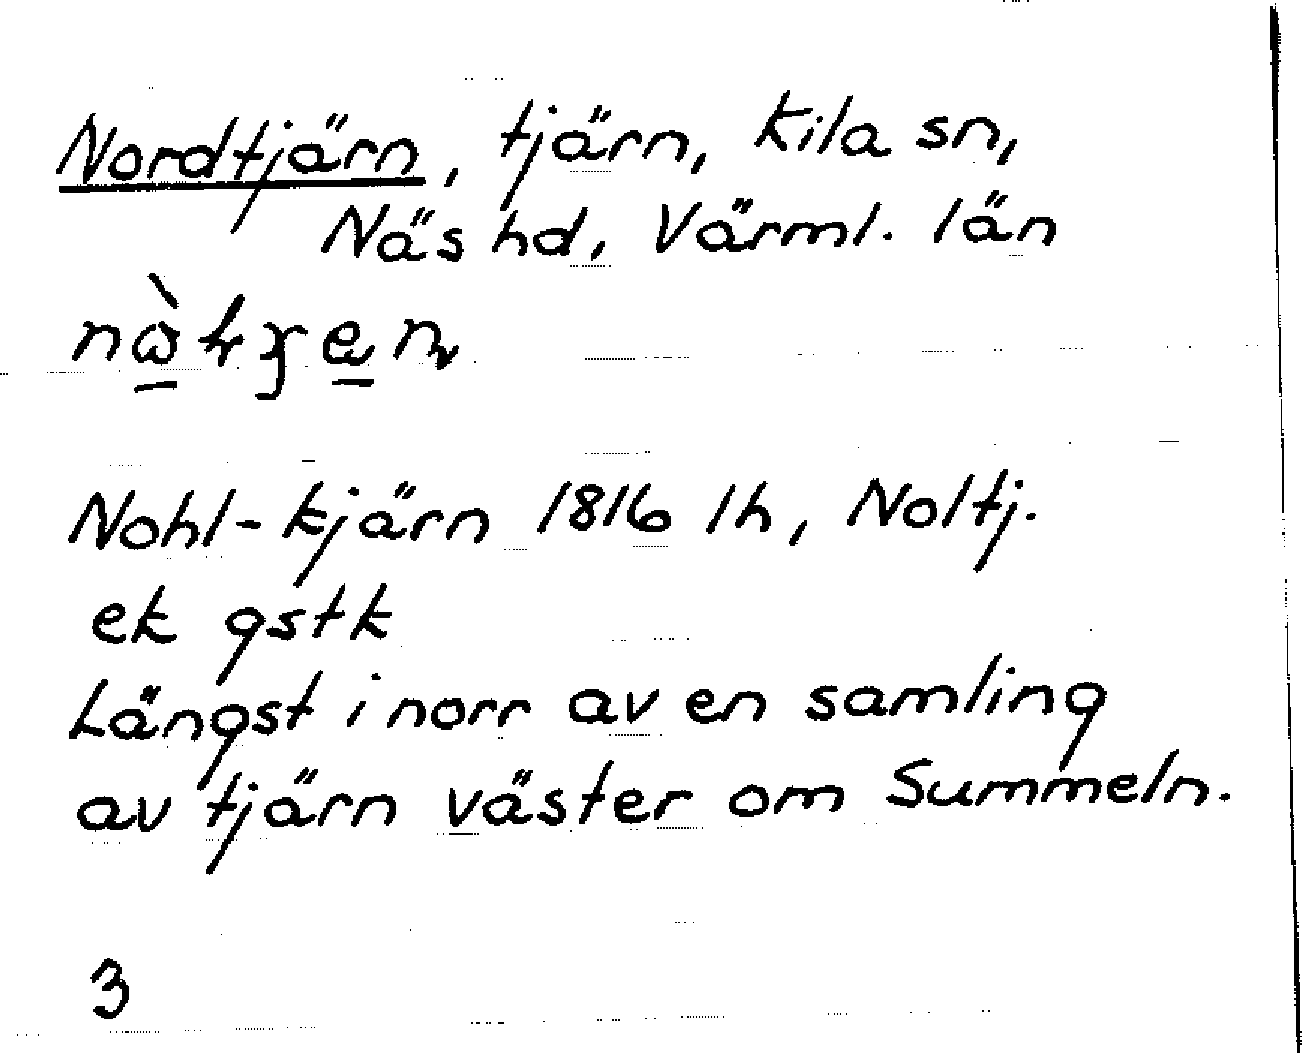 Nordtjärn, tjärn, Kila sn,
Näs hd, Värml. län
Nohl-kjärn 1816 lh, Noltj.
ek gstk
Längst i norr av en samling
av tjärn väster om Summeln.
3